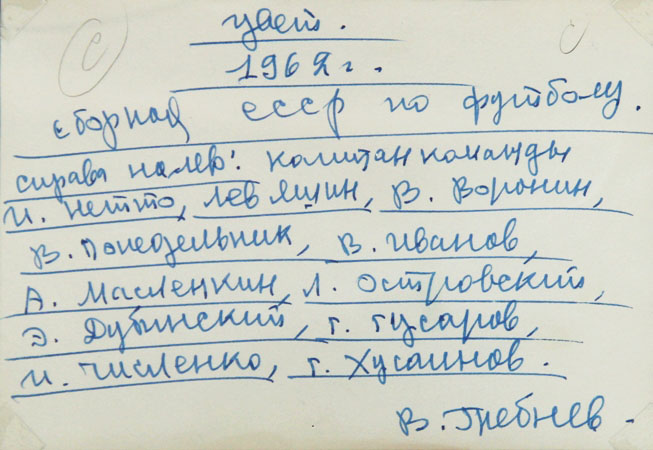 цвет.
1962 г.
сборная ссср по футболу.
справа налев: капитан команды
И. Нетто, Лев Яшин, В. Воронин,
В. Понедельник, В. Иванов,
А. Масленкин, Л. Островский,
Э. Дубинский, Г. Гусаров,
И. Численко, Г. Хусаинов.
В. Гребнев.